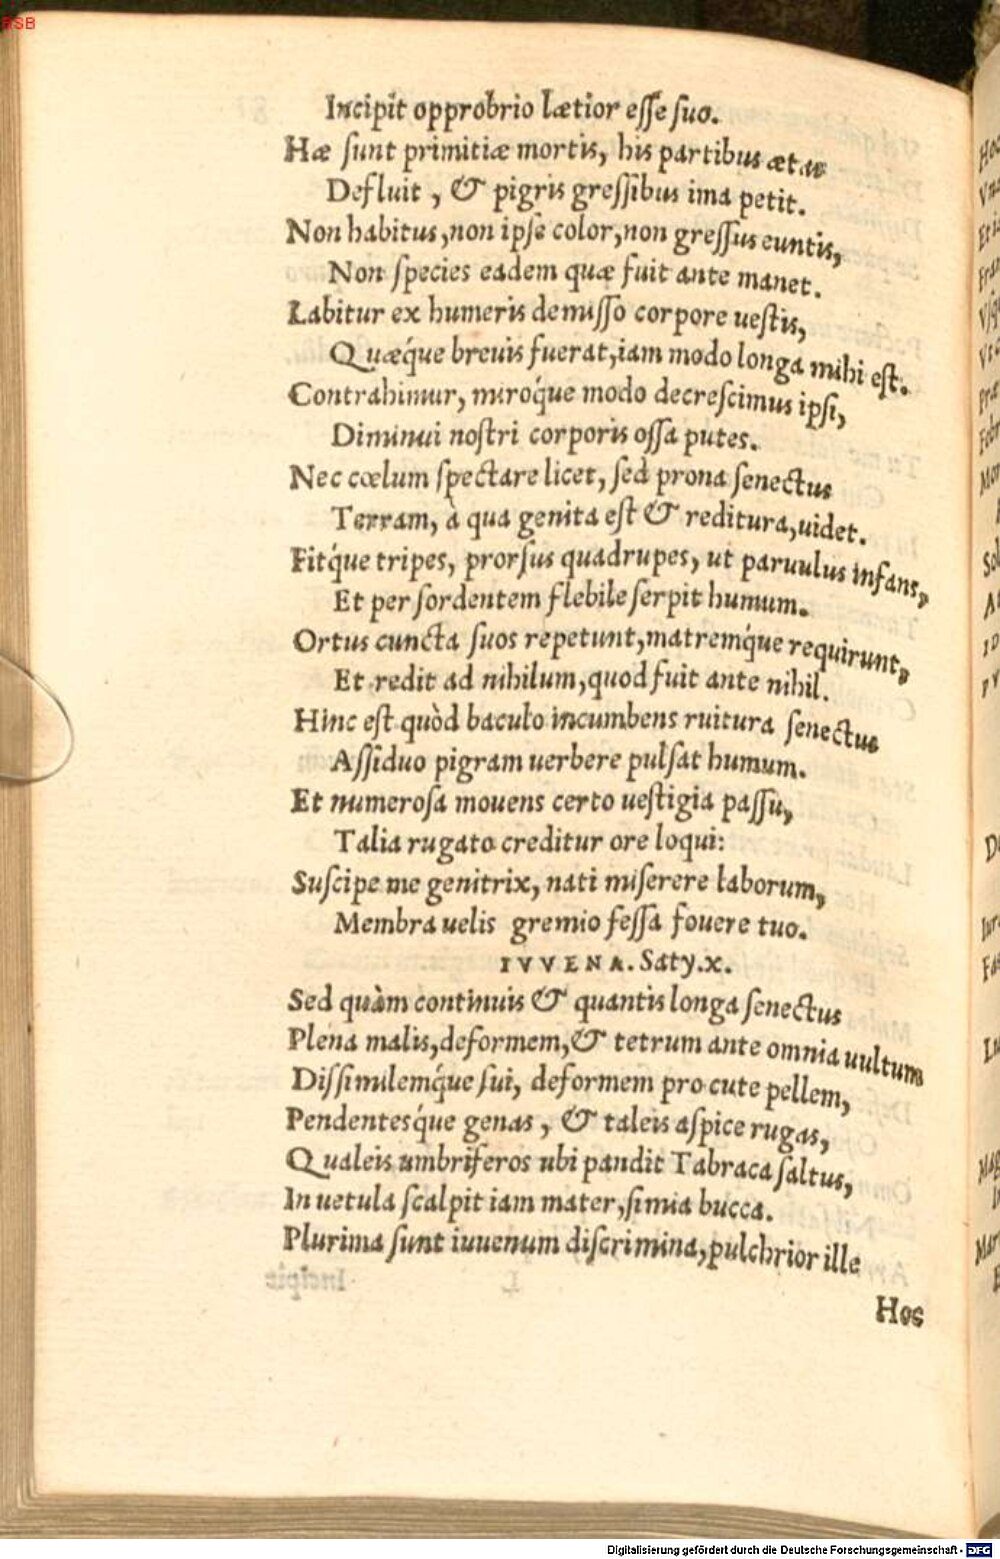 BSB
Incipit opprobrio lætior esse suo.
Hæ sunt primitiæ mortis, his partibus ætas
Defluit, & pigris gressibus ima petit.
Non habitus, non ipse color, non gressus euntis,
Non species eadem quæ fuit ante manet.
Labitur ex humeris demisso corpore uestis,
Quæq́ue breuis fuerat, iam modo longa mihi est.
Contrahimur, miroq́ue modo decrescimus ipsi,
Diminui nostri corporis ossa putes.
Nec cœlum spectare licet, sed prona senectus
Terram, à qua genita est & reditura, uidet.
Fitq́ue tripes, prorsus quadrupes, ut paruulus infans,
Et per sordentem flebile serpit humum.
Ortus cuncta suos repetunt, matremq́ue requirunt,
Et redit ad nihilum, quod fuit ante nihil.
Hinc est quòd baculo incumbens ruitura senectus
Assiduo pigram uerbere pulsat humum.
Et numerosa mouens certo uestigia passu,
Talia rugato creditur ore loqui:
Suscipe me genitrix, nati miserere laborum,
Membra uelis gremio fessa fouere tuo.
IVVENA. Saty.x.
Sed quàm continuis & quantis longa senectus
Plena malis, deformem, & tetrum ante omnia uultum
Dissimilemq́ue sui, deformem pro cute pellem,
Pendentesq́ue genas, & taleis aspice rugas,
Qualeis umbriferos ubi pandit Tabraca saltus,
In uetula scalpit iam mater, simia bucca.
Plurima sunt iuuenum discrimina, pulchrior ille
Hoc
Digitalisierung gefördert durch die Deutsche Forschungsgemeinschaft - DFG